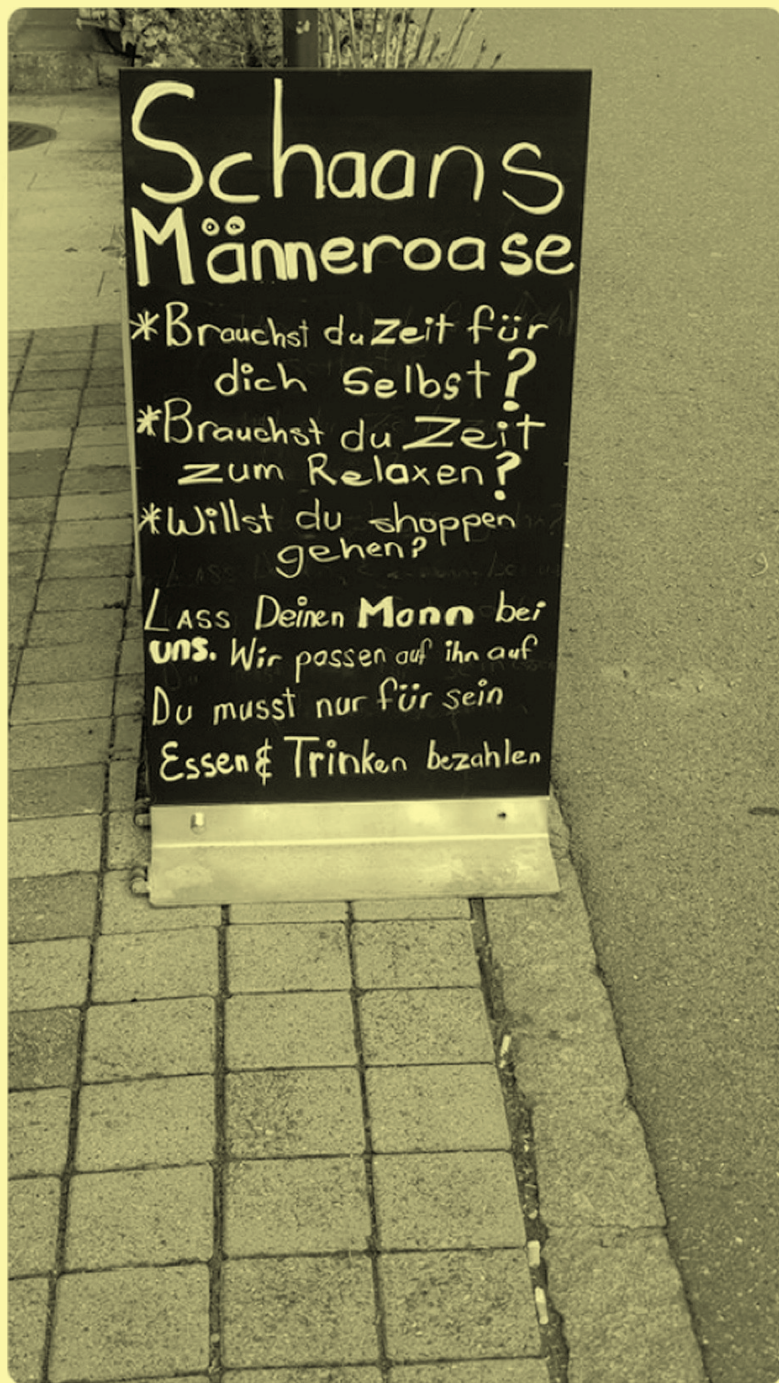 Schaans
Männeroase
*Brauchst du Zeit für
dich Selbst?
*Brauchst du Zeit
zum Relaxen?
*Willst du shoppen
gehen?
LASS Deinen Mann bei
uns. Wir passen auf ihn auf
Du musst nur für sein
Essen & Trinken bezahlen